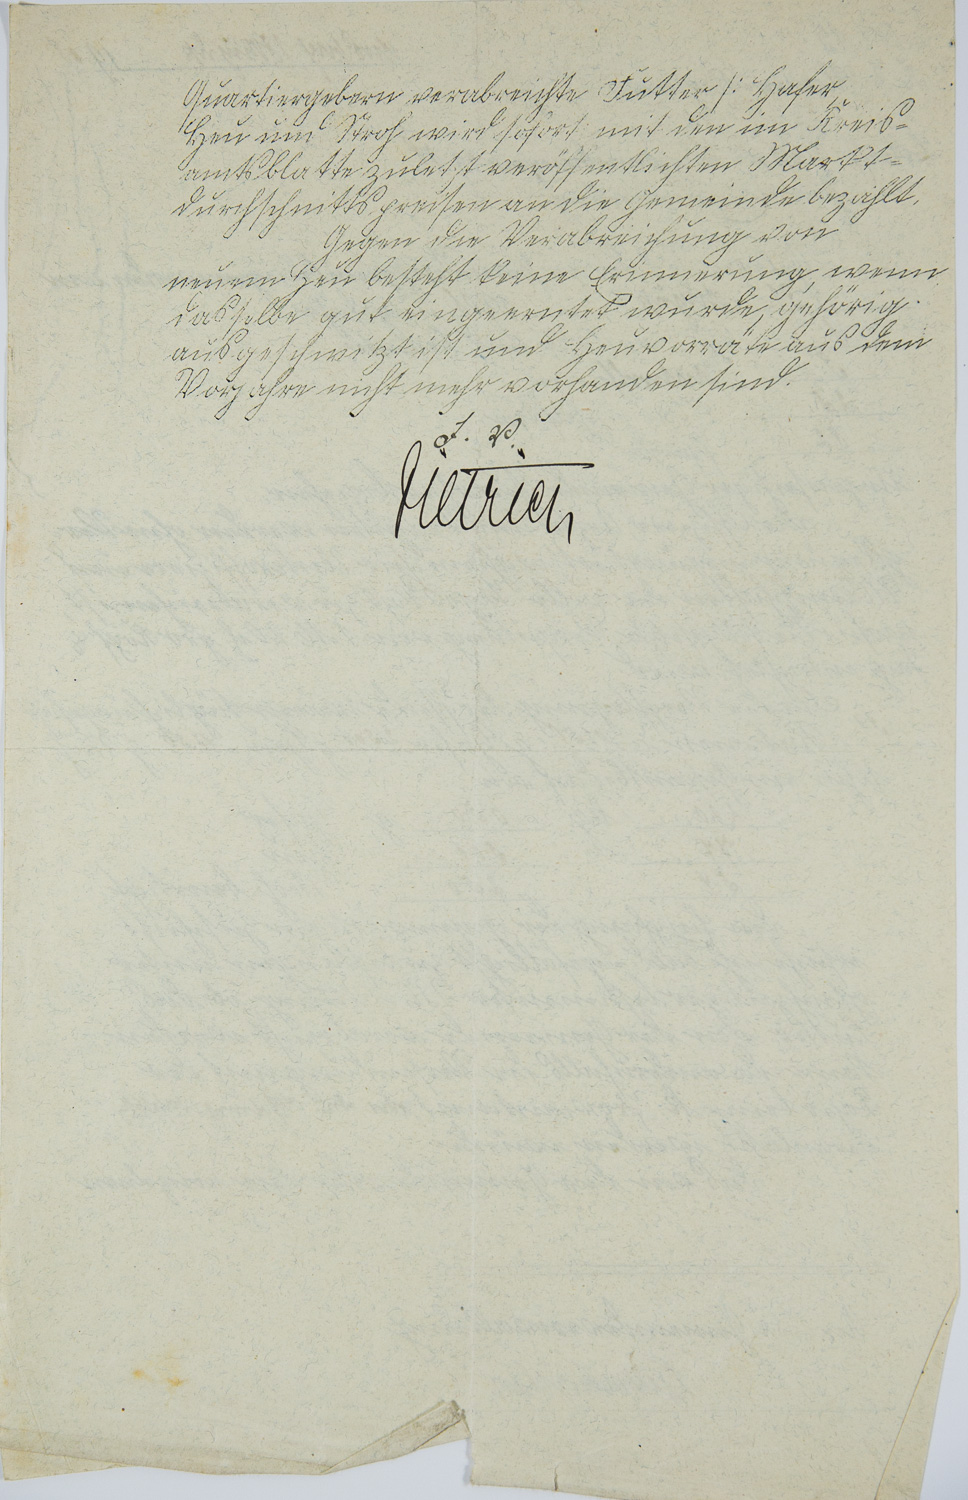 Quartiergebern verabreichte Futter /: Hafer,
Heu und Stroh wird sofort mit den im Kreis=
amtsblatte zuletzt veröffentlichten Markt=
durchschnittspreisen an die Gemeinde bezahlt.
Gegen die Verabreichung von
neuem Heu besteht keine Erinnerung, wenn
dasselbe gut eingeerntet wurde, gehörig
ausgeschwitzt ist und Heuvorräte aus dem
Vorjahre nicht mehr vorhanden sind.
I. V.
Dietrich